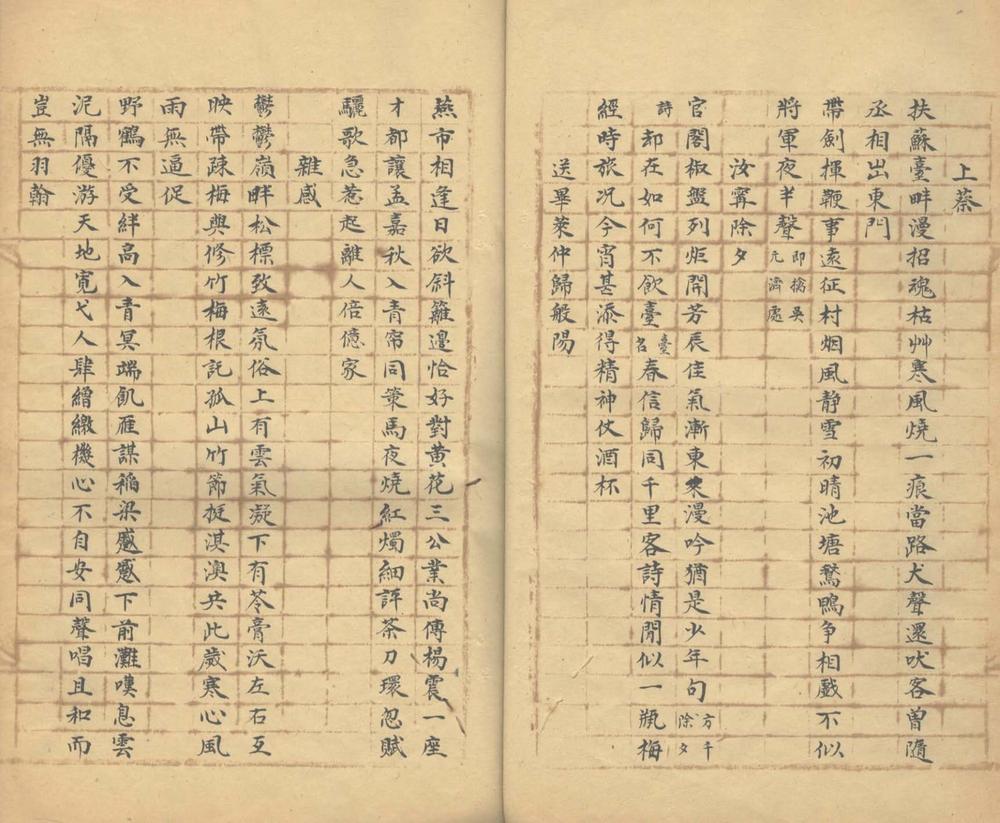 上蔡
扶蘇臺畔漫招魂枯艸寒風燒一痕當路犬聲還吠客曾隨
丞相出東門
帶劍揮鞭事遠征村烟風靜雪初晴池塘鶩鴨争相戲不似
將軍夜半聲即擒吳元濟處
汝寧除夕
官閣椒盤列炬開芳辰佳氣漸東來漫吟猶是少年句方千除夕
詩却在如何不飲臺臺名春信歸同千里客詩情閒似一瓶梅
經時旅况今宵甚添得精神仗酒杯
送畢萊仲歸般陽
燕市相逢日欲斜籬邊恰好對黄花三公業尚傳楊震一座
才都讓孟嘉秋入青帘同策馬夜燒紅燭細評茶刀環忽賦
驪歌急惹起離人倍億家
雜感
鬱鬱嶺畔松標致遠氛俗上有雲氣凝下有苓膏沃左右互
映帶疎梅與修竹梅根託孤山竹節挺淇澳共此歲寒心風
雨無逼促
野鶴不受絆高入青冥端飢雁謀稻梁感感下前灘嘆息雲
泥隔優游天地寛弋人肆繒繳機心不自安同聲唱且和而
豈無羽翰